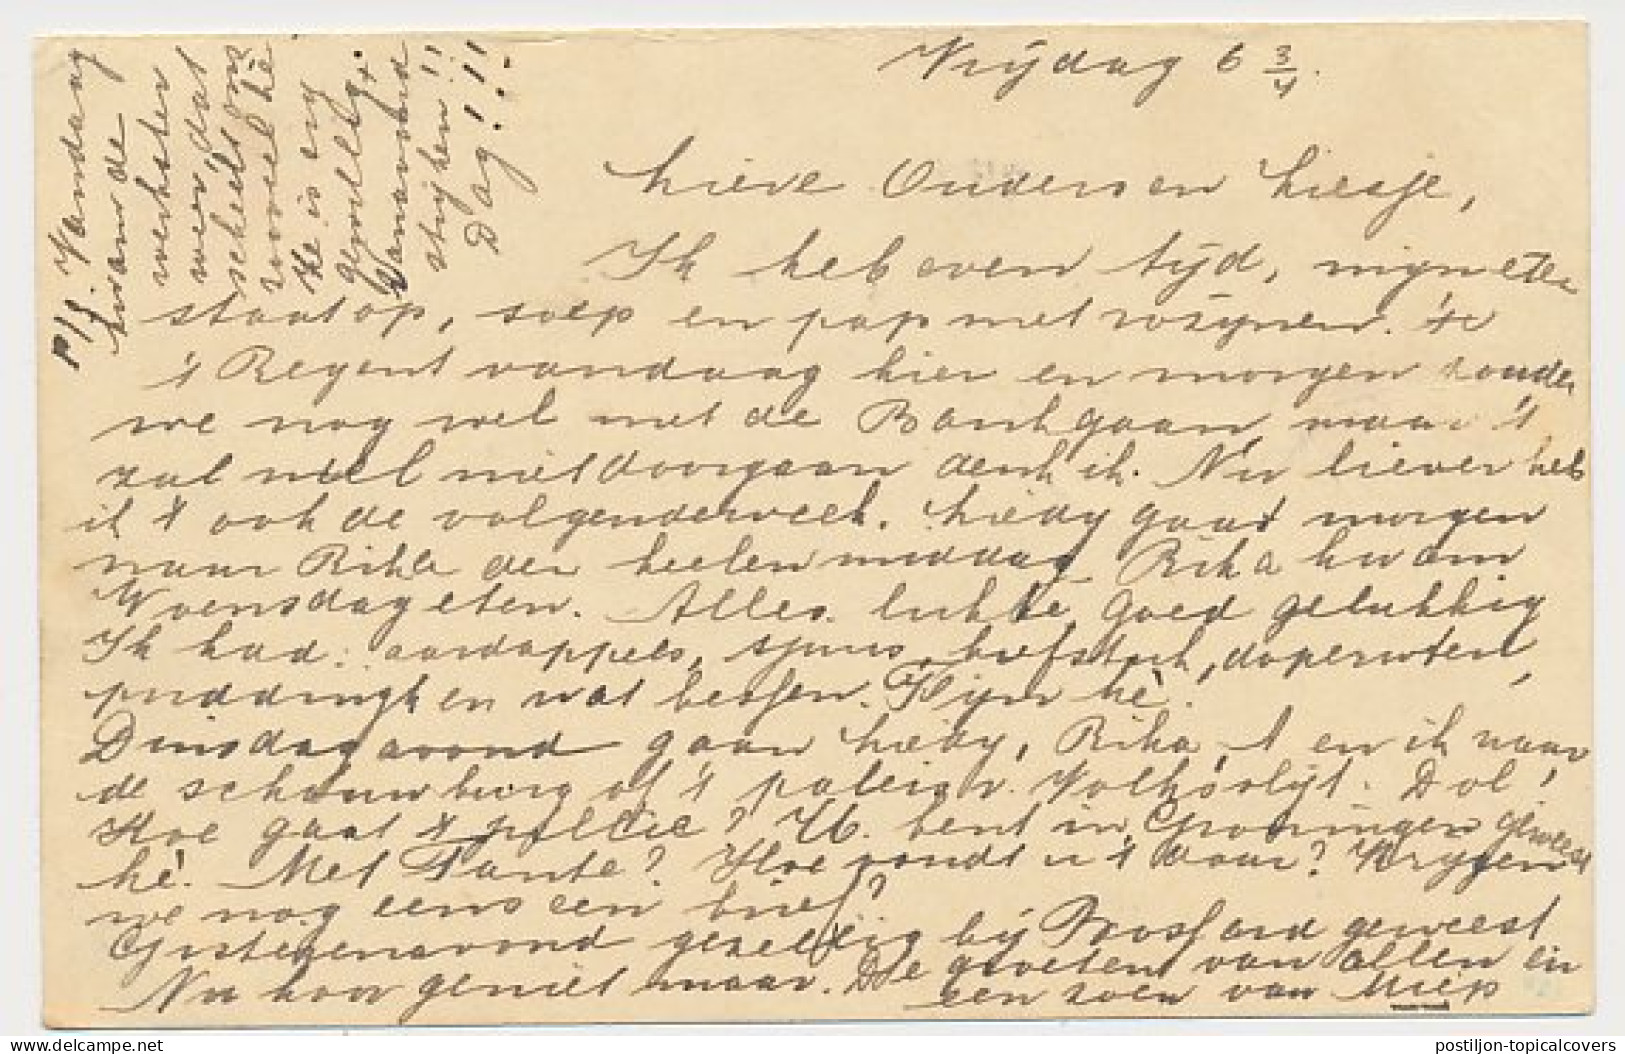 Vrijdag 6 3/4.
Lieve Ouders en Liesje,
Ik heb even tijd, mijn eten
staat op, soep en pap met rozijnen.
't Regent vandaag hier en morgen zouden
we nog wel met de Bank gaan, maar 't
zal wel niet doorgaan denk ik. Nu liever heb
ik 't ook de volgende week. Liedy gaat morgen
naar Rika den heelen middag. Rika kwam
Woensdag eten. Alles lukte goed gelukkig
Ik had: aardappels, sjuus, biefstuk, doperwten,
pudding en wat bessen. Fijn hè.
Dinsdagavond gaan Liedy, Rika, en ik naar
de schouwburg of 't paleis v. Volksvlijt. Dol!
Hoe gaat 't ? U. bent in Groningen geweest
hè. Met Tante? Hoe vondt u 't daar? Krijgen
we nog eens een brief?
Gisterenavond gezellig bij geweest
Nu hoor geniet maar. De groeten van allen en
een zoen van Miep
P/S Vandaag
kwam de
werkster
weer, dat
scheelt ons
zooveel hè
Ze is erg
gewillig.
Vanavond
strijken!!
Dag!!!!
postiljon-topicalcovers